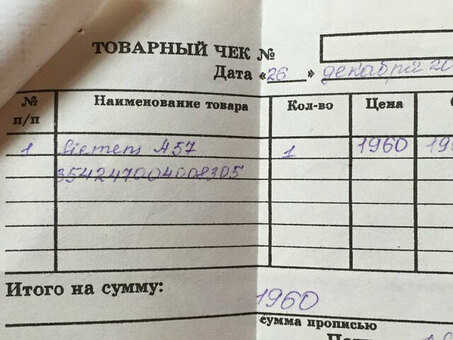 ТОВАРНЫЙ ЧЕК №
Дата «26» декабря 20
№ п/п Наименование товара Кол-во Цена
1 Siemens A57 1 1960 19
354247004008305
Итого на сумму:
1960
сумма прописью